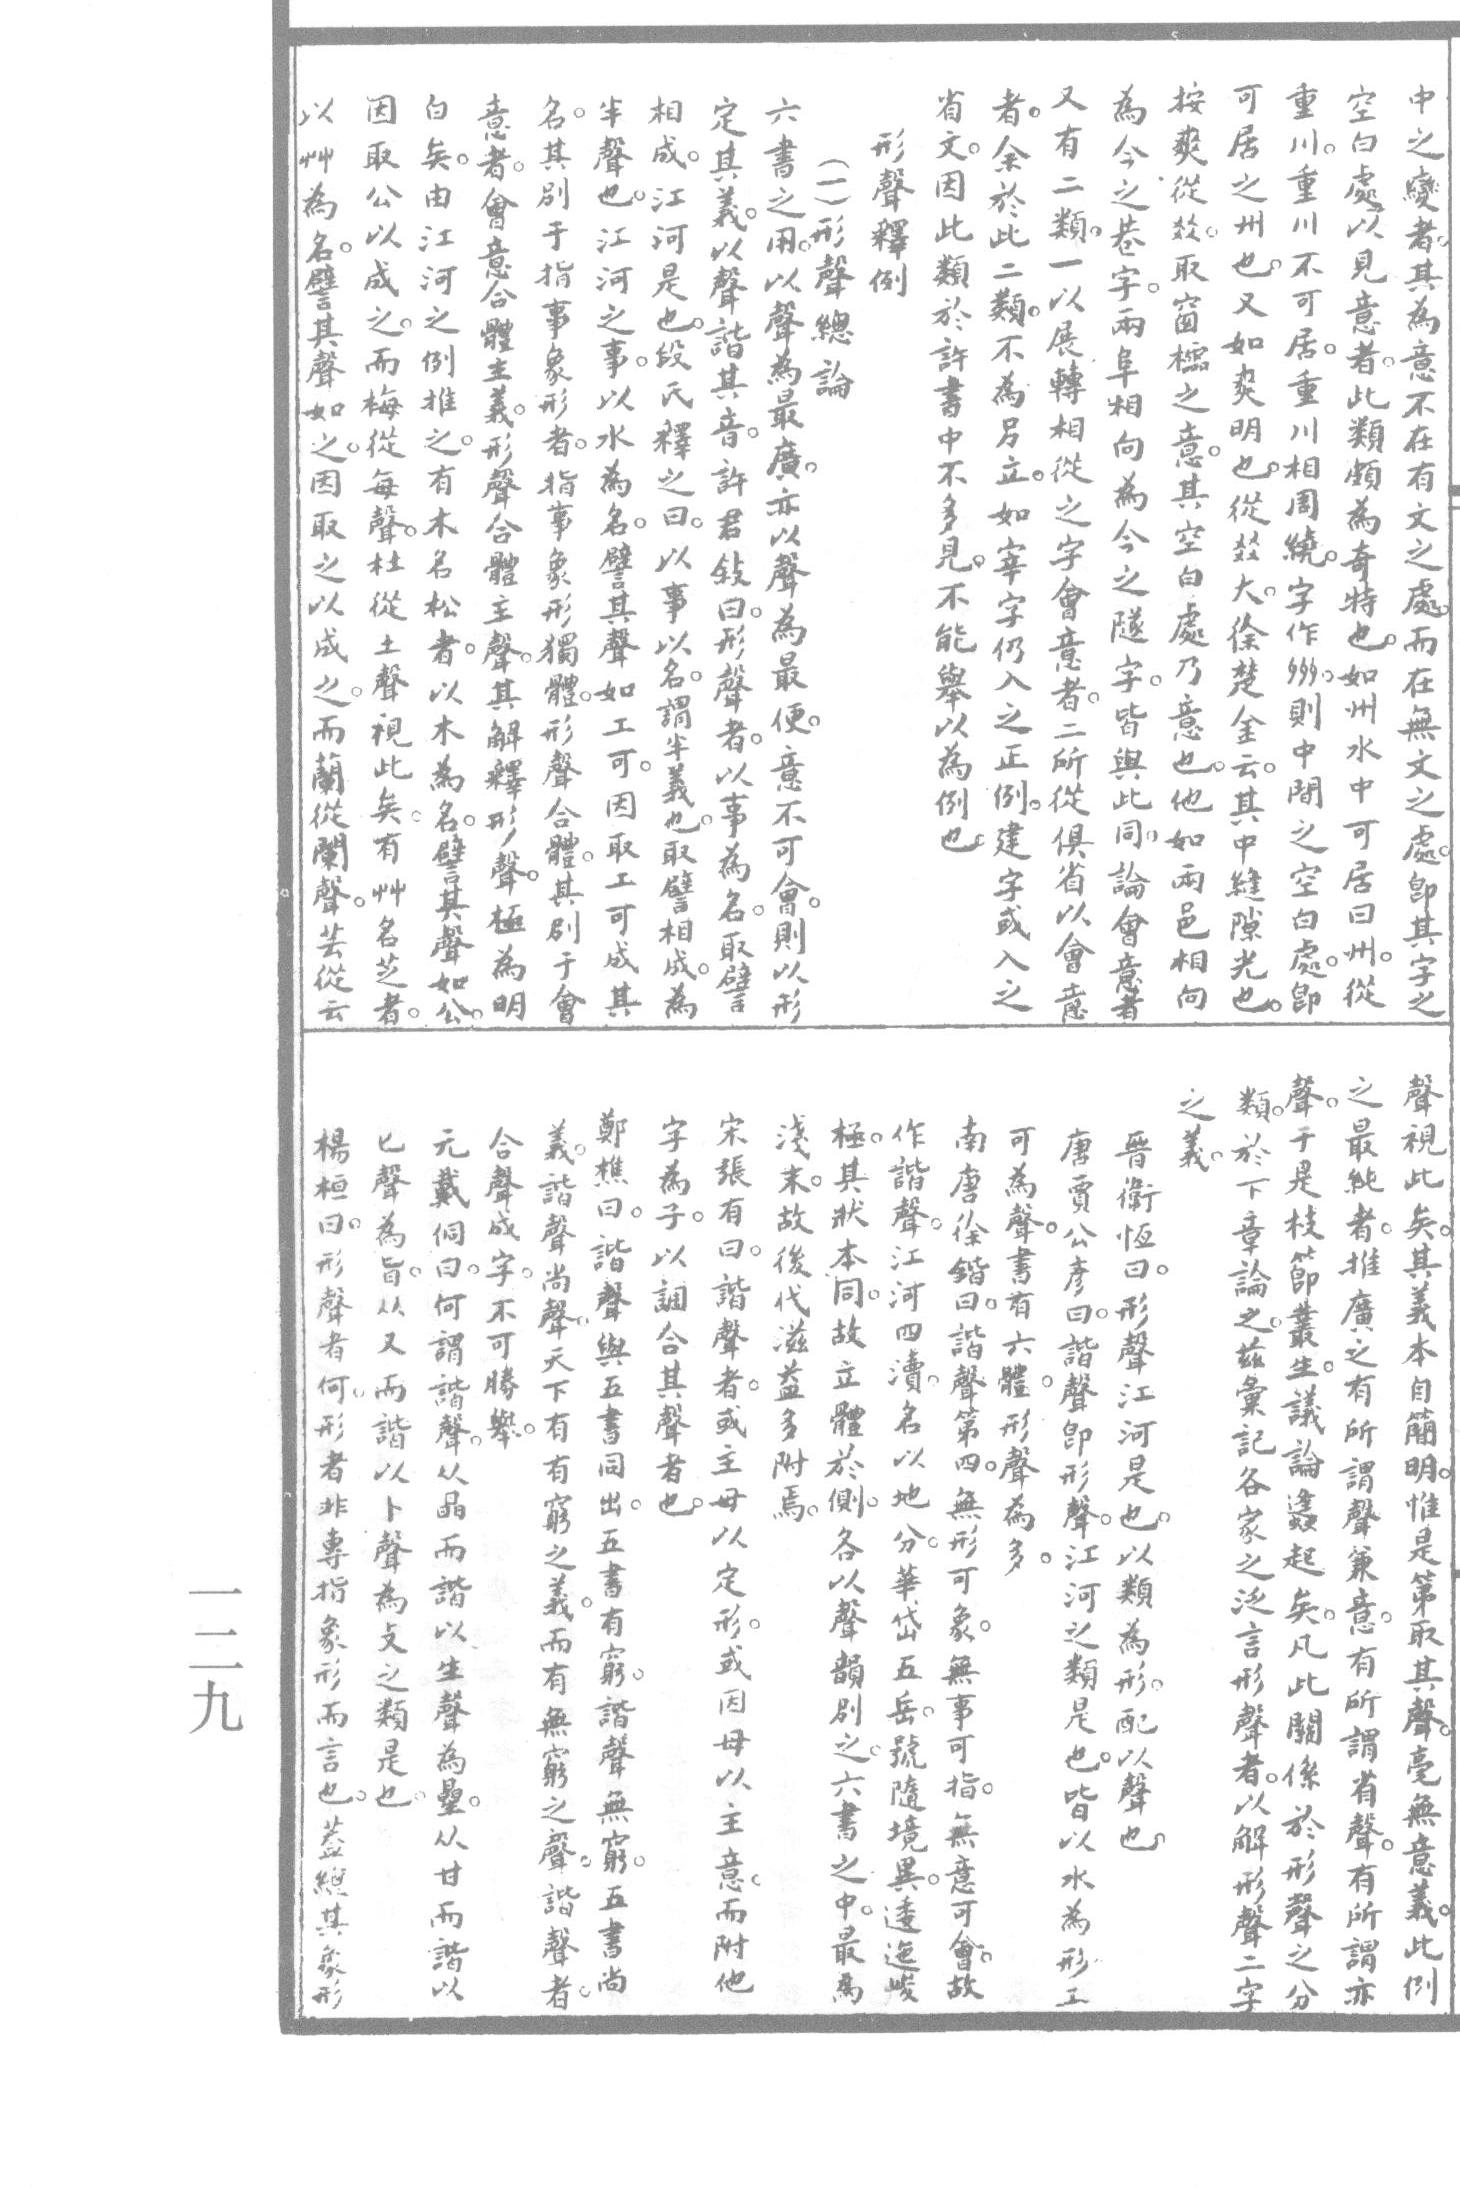 中之變者。其為意不在有文之處。而在無文之處。卽其字之
空白處。以見意者。此類頗為奇特也。如州水中可居曰州。從
重川。重川不可居。重川相周繞。字作𡿧。則中閒之空白處。卽
可居之州也。又如爽明也。從㸚大。徐楚金云。其中縫隙光也。
按爽從㸚。取窗櫺之意。其空白處乃意也。他如兩邑相向
為今之巷字。兩阜相向為今之隧字。皆與此同。論會意者
又有二類。一以展轉相從之字會意者。二所從俱省以會意
者。余於此二類。不為另立。如宰字仍入之正例。建字或入之
省文。因此類於許書中不多見。不能舉以為例也。
形聲釋例
(一)形聲總論
六書之用。以聲為最廣。亦以聲為最便。意不可會。則以形
定其義。以聲諧其音。許君敍曰。形聲者。以事為名。取譬
相成。江河是也。段氏釋之曰。以事以名。謂半義也。取譬相成。為
半聲也。江河之事。以水為名。譬其聲如工可。因取工可成其
名。其別于指事象形者。指事象形獨體。形聲合體。其別于會
意者。會意合體主義。形聲合體主聲。其解釋形聲。極為明
白矣。由江河之例推之。有木名松者。以木為名。譬其聲如公。
因取公以成之。而梅從每聲。杜從土聲視此矣。有艸名芝者。
以艸為名。譬其聲如之。因取之以成之。而蘭從闌聲。芸從云
聲視此矣。其義本自簡明。惟是第取其聲。毫無意義。此例
之最純者。推廣之有所謂聲兼意。有所謂省聲。有所謂亦
聲。于是枝節叢生。議論蠭起矣。凡此關係於形聲之分
類。於下章論之。茲彙記各家之泛言形聲者。以解形聲二字
之義。
晉衛恆曰。形聲江河是也。以類為形。配以聲也。
唐賈公彥曰。諧聲卽形聲。江河之類是也。皆以水為形工
可為聲。書有六體。形聲為多。
南唐徐鍇曰。諧聲第四。無形可象。無事可指。無意可會。故
作諧聲。江河四瀆。名以地分。華岱五岳。號隨境異。逶迤峻
極。其狀本同。故立體於側。各以聲韻別之。六書之中。最為
淺末。故後代滋益多附焉。
宋張有曰。諧聲者。或主母以定形。或因母以主意。而附他
字為子。以調合其聲者也。
鄭樵曰。諧聲與五書同出。五書有窮。諧聲無窮。五書尚
義。諧聲尚聲。天下有有窮之義。而有無窮之聲。諧聲者。
合聲成字。不可勝舉。
元戴侗曰。何謂諧聲。从晶而諧以生聲為曐。从甘而諧以
匕聲為旨。从又而諧以卜聲為攴之類是也。
楊桓曰。形聲者何。形者非專指象形而言也。蓋總其象形
一二九